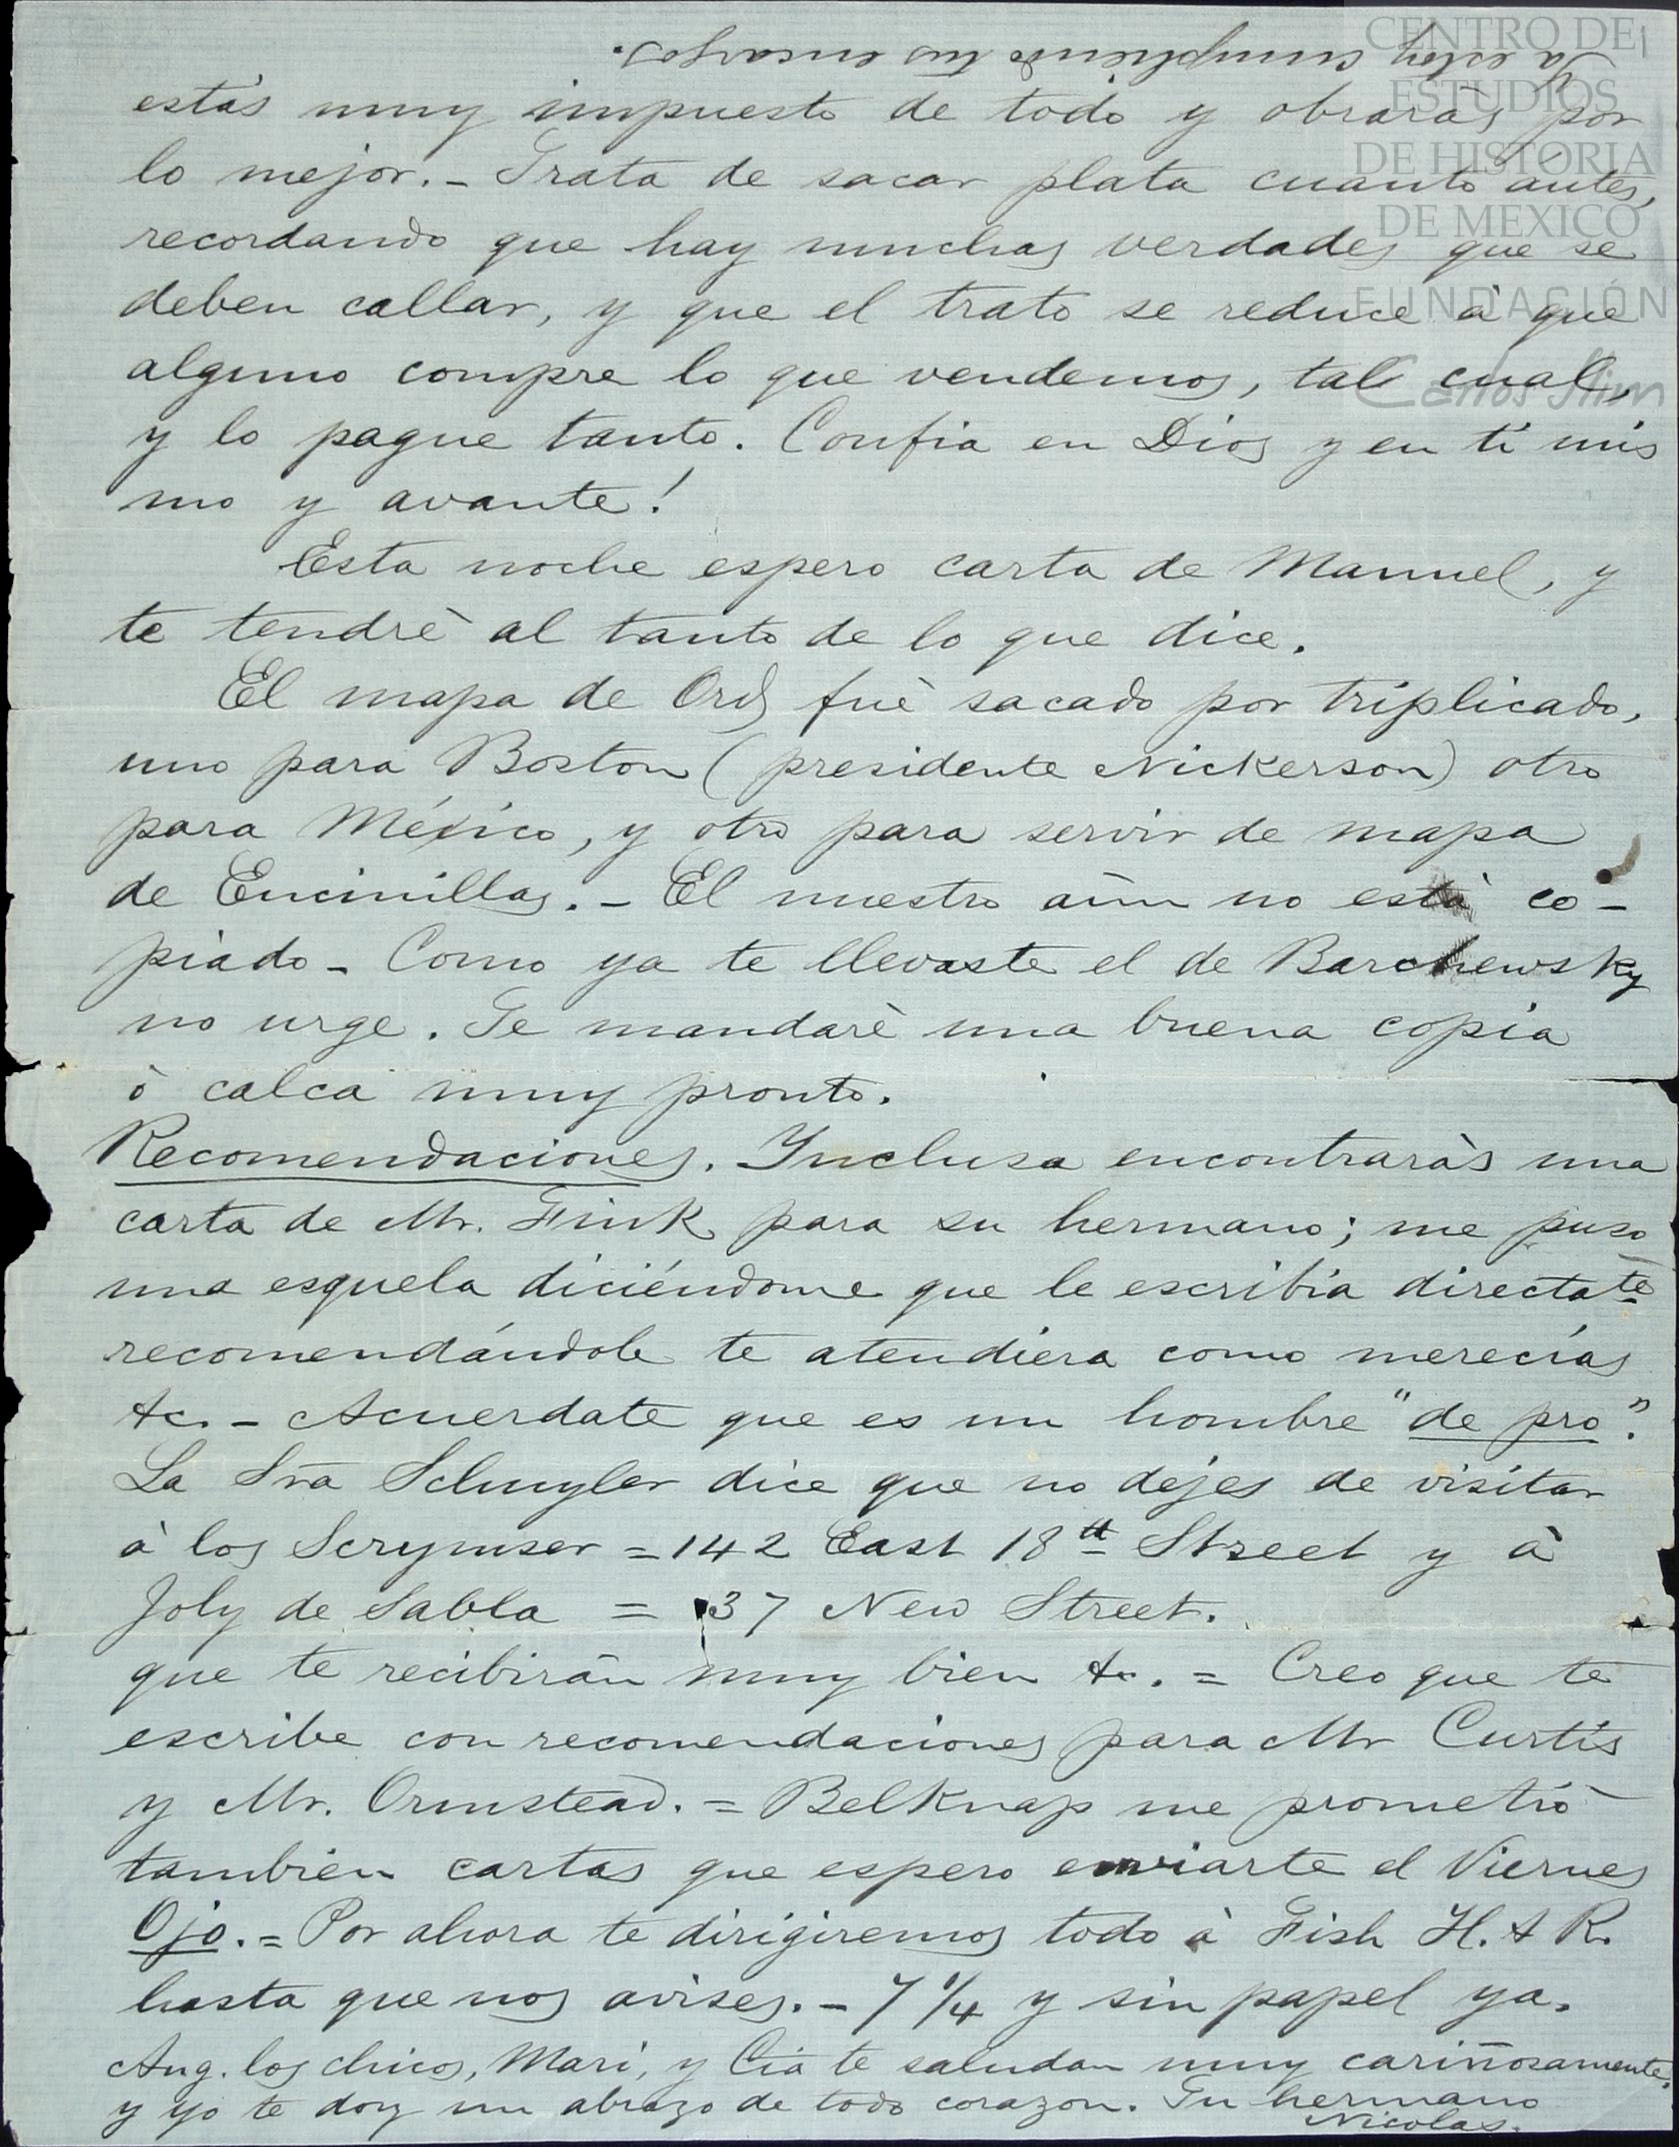 Ya estoy cumpliendo tus encargos.
estás muy impuesto de todo y obrarás por
lo mejor. – Trata de sacar plata cuanto antes,
recordando que hay muchas verdades que se
deben callar, y que el trato se reduce à que
alguno compre lo que vendemos, tal cual,
y lo pague tanto. Confia en Dios y en ti mis
mo y avante!
Esta noche espero carta de Manuel, y
te tendrè al tanto de lo que dice.
El mapa de Ord fuè sacado por triplicado,
uno para Boston (presidente Nickerson) otro
para México, y otro para servir de mapa
de Encinillas. – El nuestro aùn no està co–
piado – Como ya te llevaste el de Barchewsky
no urge. Te mandarè una buena copia
ò calca muy pronto.
Recomendaciones. Ynclusa encontraràs una
carta de Mr. Fink para su hermano; me puso
una esquela diciéndome que le escribia directate
recomendándole te atendiera como merecías
&c. – Acuerdate que es un hombre "de pro".
La Sra Schuyler dice que no dejes de visitar
à los Scrymser = 142 East 18th Street y à
Joly de Sabla = 37 New Street.
que te recibirán muy bien &c. = Creo que te
escribe con recomendaciones para Mr Curtis
y Mr. Ormstead. = Belknap me prometiò
tambièn cartas que espero enviarte el Viernes
Ojo. = Por ahora te dirigiremos todo à Fish H. & R.
hasta que nos avises. – 7 1/4 y sin papel ya.
Ang. los chicos, Mari, y Cia te saludan muy cariñosamente,
y yo te doy un abrazo de todo corazon. Tu hermano
Nicolas.
CENTRO DE
ESTUDIOS
DE HISTORIA
DE MEXICO
FUNDACIÓN
Carlos Slim